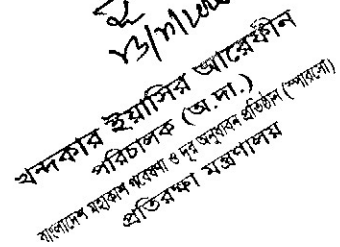 খন্দকার ইয়াসির আরেফীন
পরিচালক (অ.দা.)
বাংলাদেশ মহাকাশ গবেষণা ও দূর অনুধাবন প্রতিষ্ঠান (স্পারসো)
প্রতিরক্ষা মন্ত্রণালয়